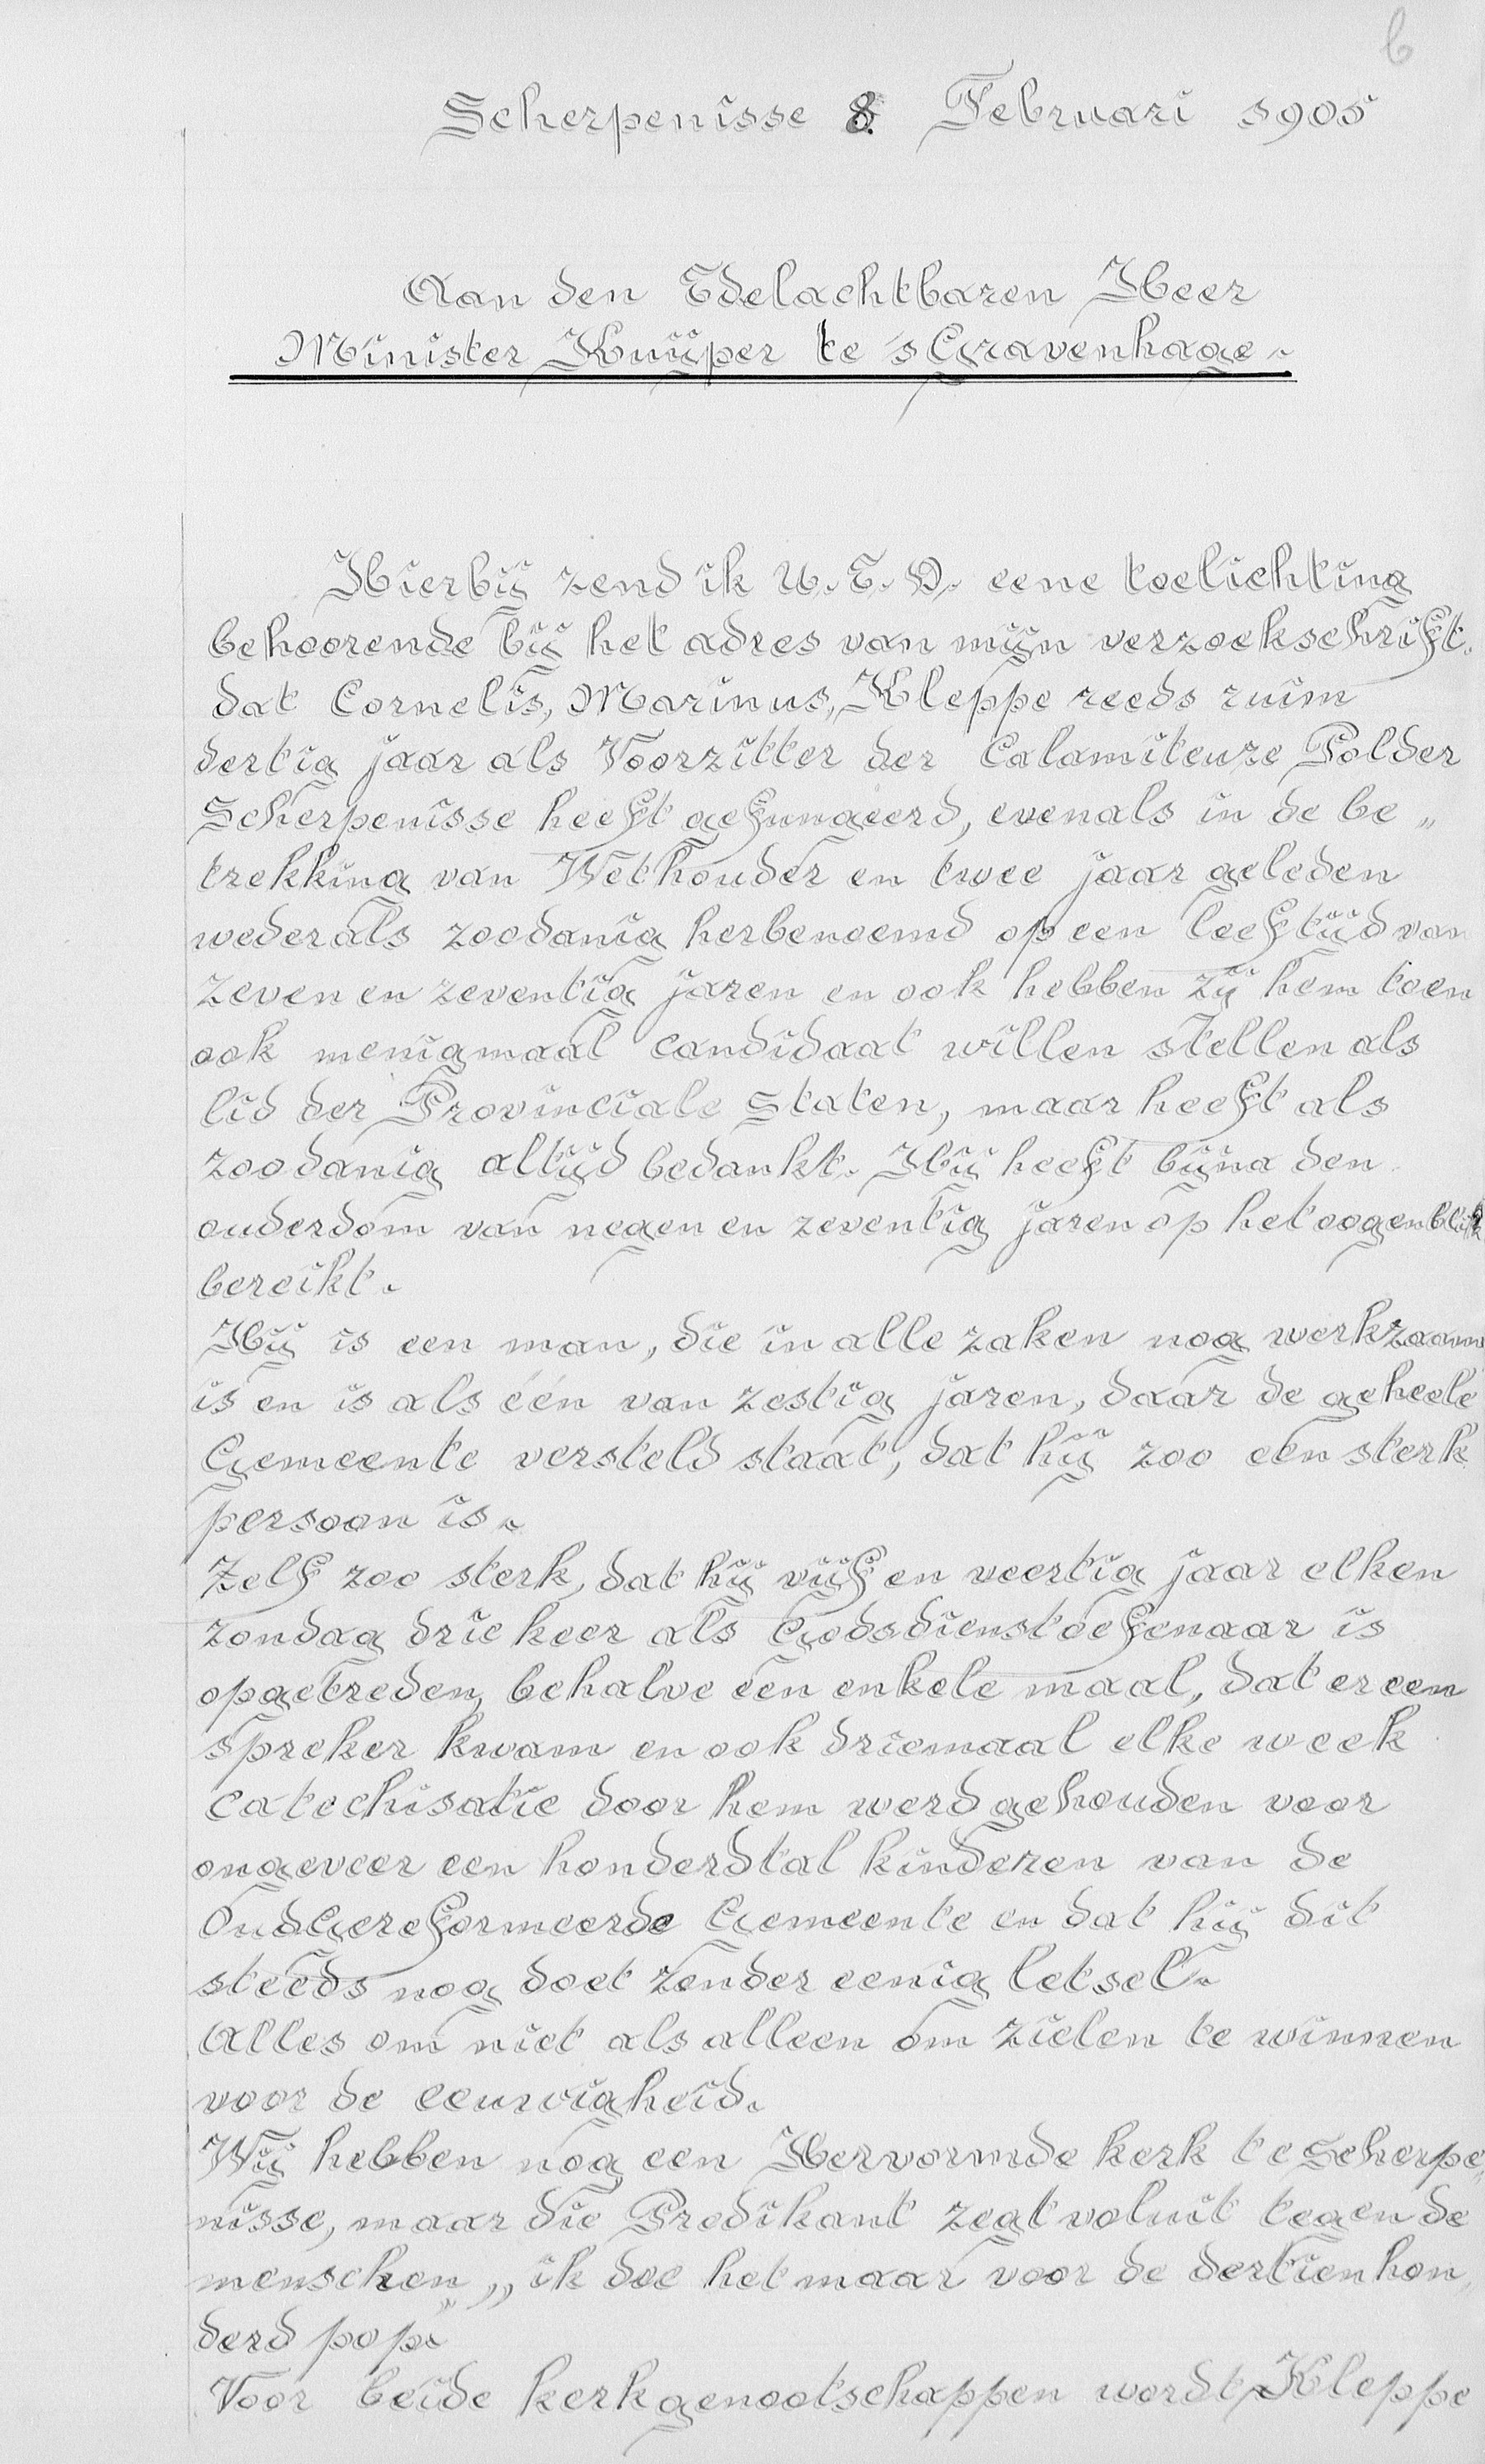 6
Scherpenisse 8. Februari 1905
Aan den Edelachtbaren Heer
Minister Kuijper te 's Gravenhage.
Hierbij zend ik U.E.D. eene toelichting
behoorende bij het adres van mijn verzoekschrift.
dat Cornelis, Marinus, Kleppe reeds ruim
dertig jaar als Voorzitter der Calamiteuze Polder
Scherpenisse heeft gefungeerd, evenals in de be„
trekking van Wethouder en twee jaar geleden
weder als zoodanig herbenoemd op een leeftijd van
zeven en zeventig jaren en ook hebben zij hem toen
ook menigmaal candidaat willen stellen als
lid der Provinciale Staten, maar heeft als
zoodanig altijd bedankt. Hij heeft bijna den
ouderdom van negen en zeventig jaren op het oogenblik
bereikt.
Hij is een man, die in alle zaken nog werkzaam
is en is als één van zestig jaren, daar de geheele
Gemeente versteld staat, dat hij zoo een sterk
persoon is.
Zelf zoo sterk, dat hij vijf en veertig jaar elken
zondag drie keer als Godsdienstoefenaar is
opgetreden, behalve een enkele maal, dat er een
spreker kwam en ook driemaal elke week
catechisatie door hem werd gehouden voor
ongeveer een honderdtal kinderen van de
OudGereformeerde Gemeente en dat hij dit
steeds nog doet zonder eenig letsel.
Alles om niet als alleen om zielen te winnen
voor de eeuwigheid.
Wij hebben nog een Hervormde kerk te Scherpe„
nisse, maar die Predikant zegt voluit tegen de
menschen „ik doe het maar voor de dertien hon„
derd pop".
Voor beide kerkgenootschappen wordt Kleppe